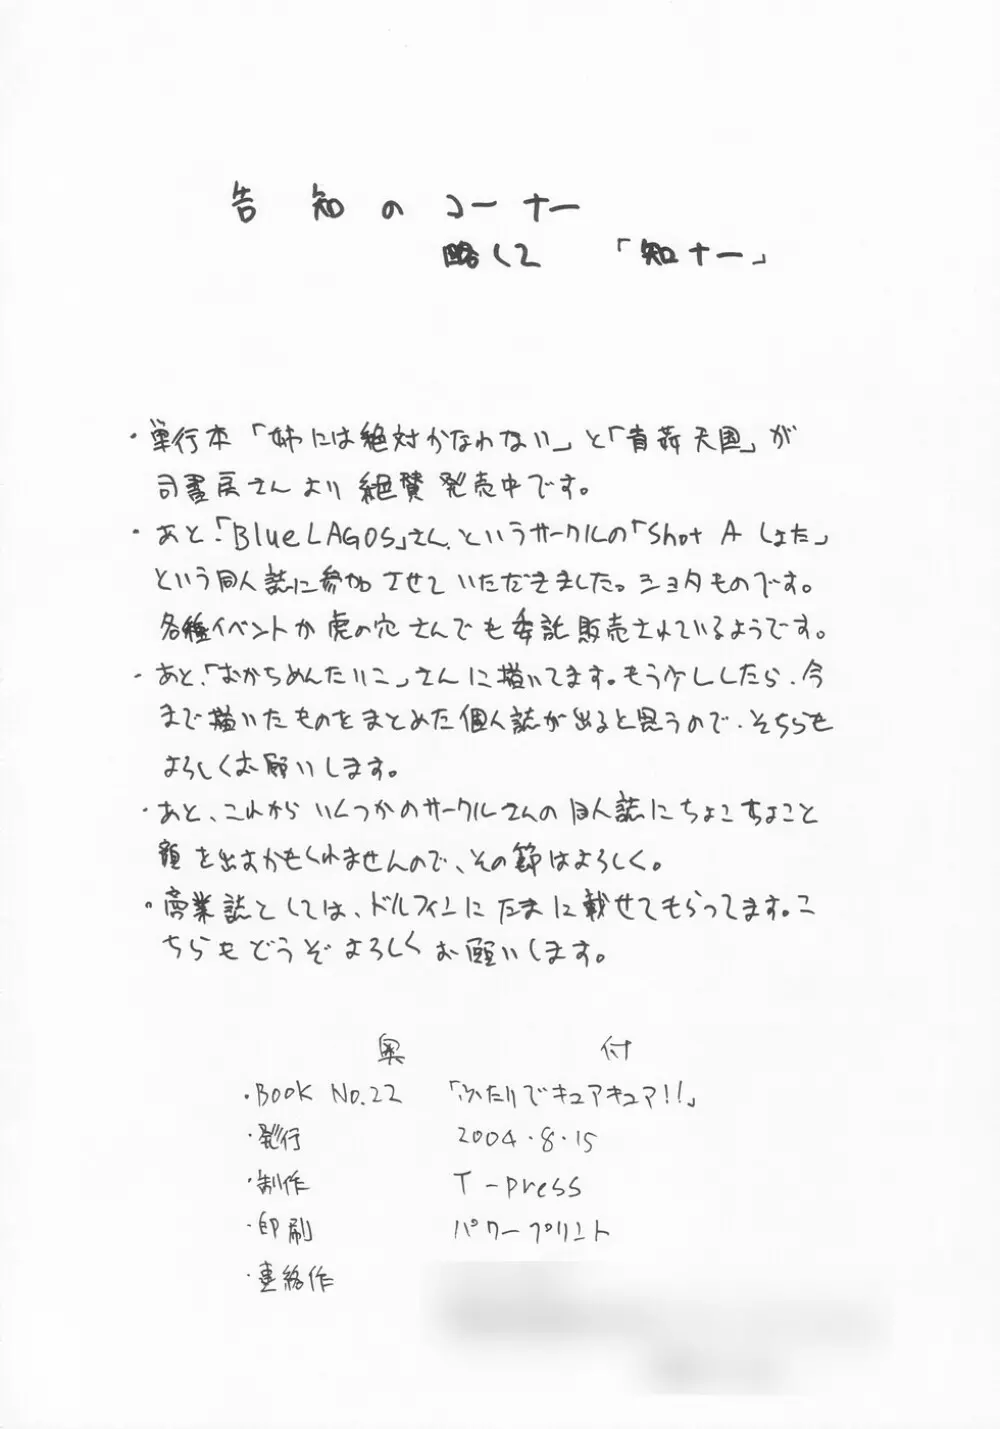 告知のコーナー
略して 「知ナー」
・単行本「姉には絶対かなわない」と「青姦天国」が
司書房さんより絶賛発売中です。
・あと、「Blue LAGOS」さん、というサークルの「Shot A しょた」
という同人誌に参加させていただきました。ショタものです。
各種イベントか虎の穴さんでも委託販売されているようです。
・あと、「おかちめんたいこ」さんに描いてます。もう少ししたら、今
まで描いたものをまとめた個人誌が出ると思うので、そちらも
よろしくお願いします。
・あと、これからいくつかのサークルさんの同人誌にちょこちょこと
顔を出すかもしれませんので、その節はよろしく。
・商業誌としては、ドルフィンにたまに載せてもらってます。こ
ちらもどうぞよろしくお願いします。
奥 付
・BOOK No.22 「ふたりでキュアキュア!!」
・発行 2004・8・15
・制作 T-press
・印刷 パワープリント
・連絡作